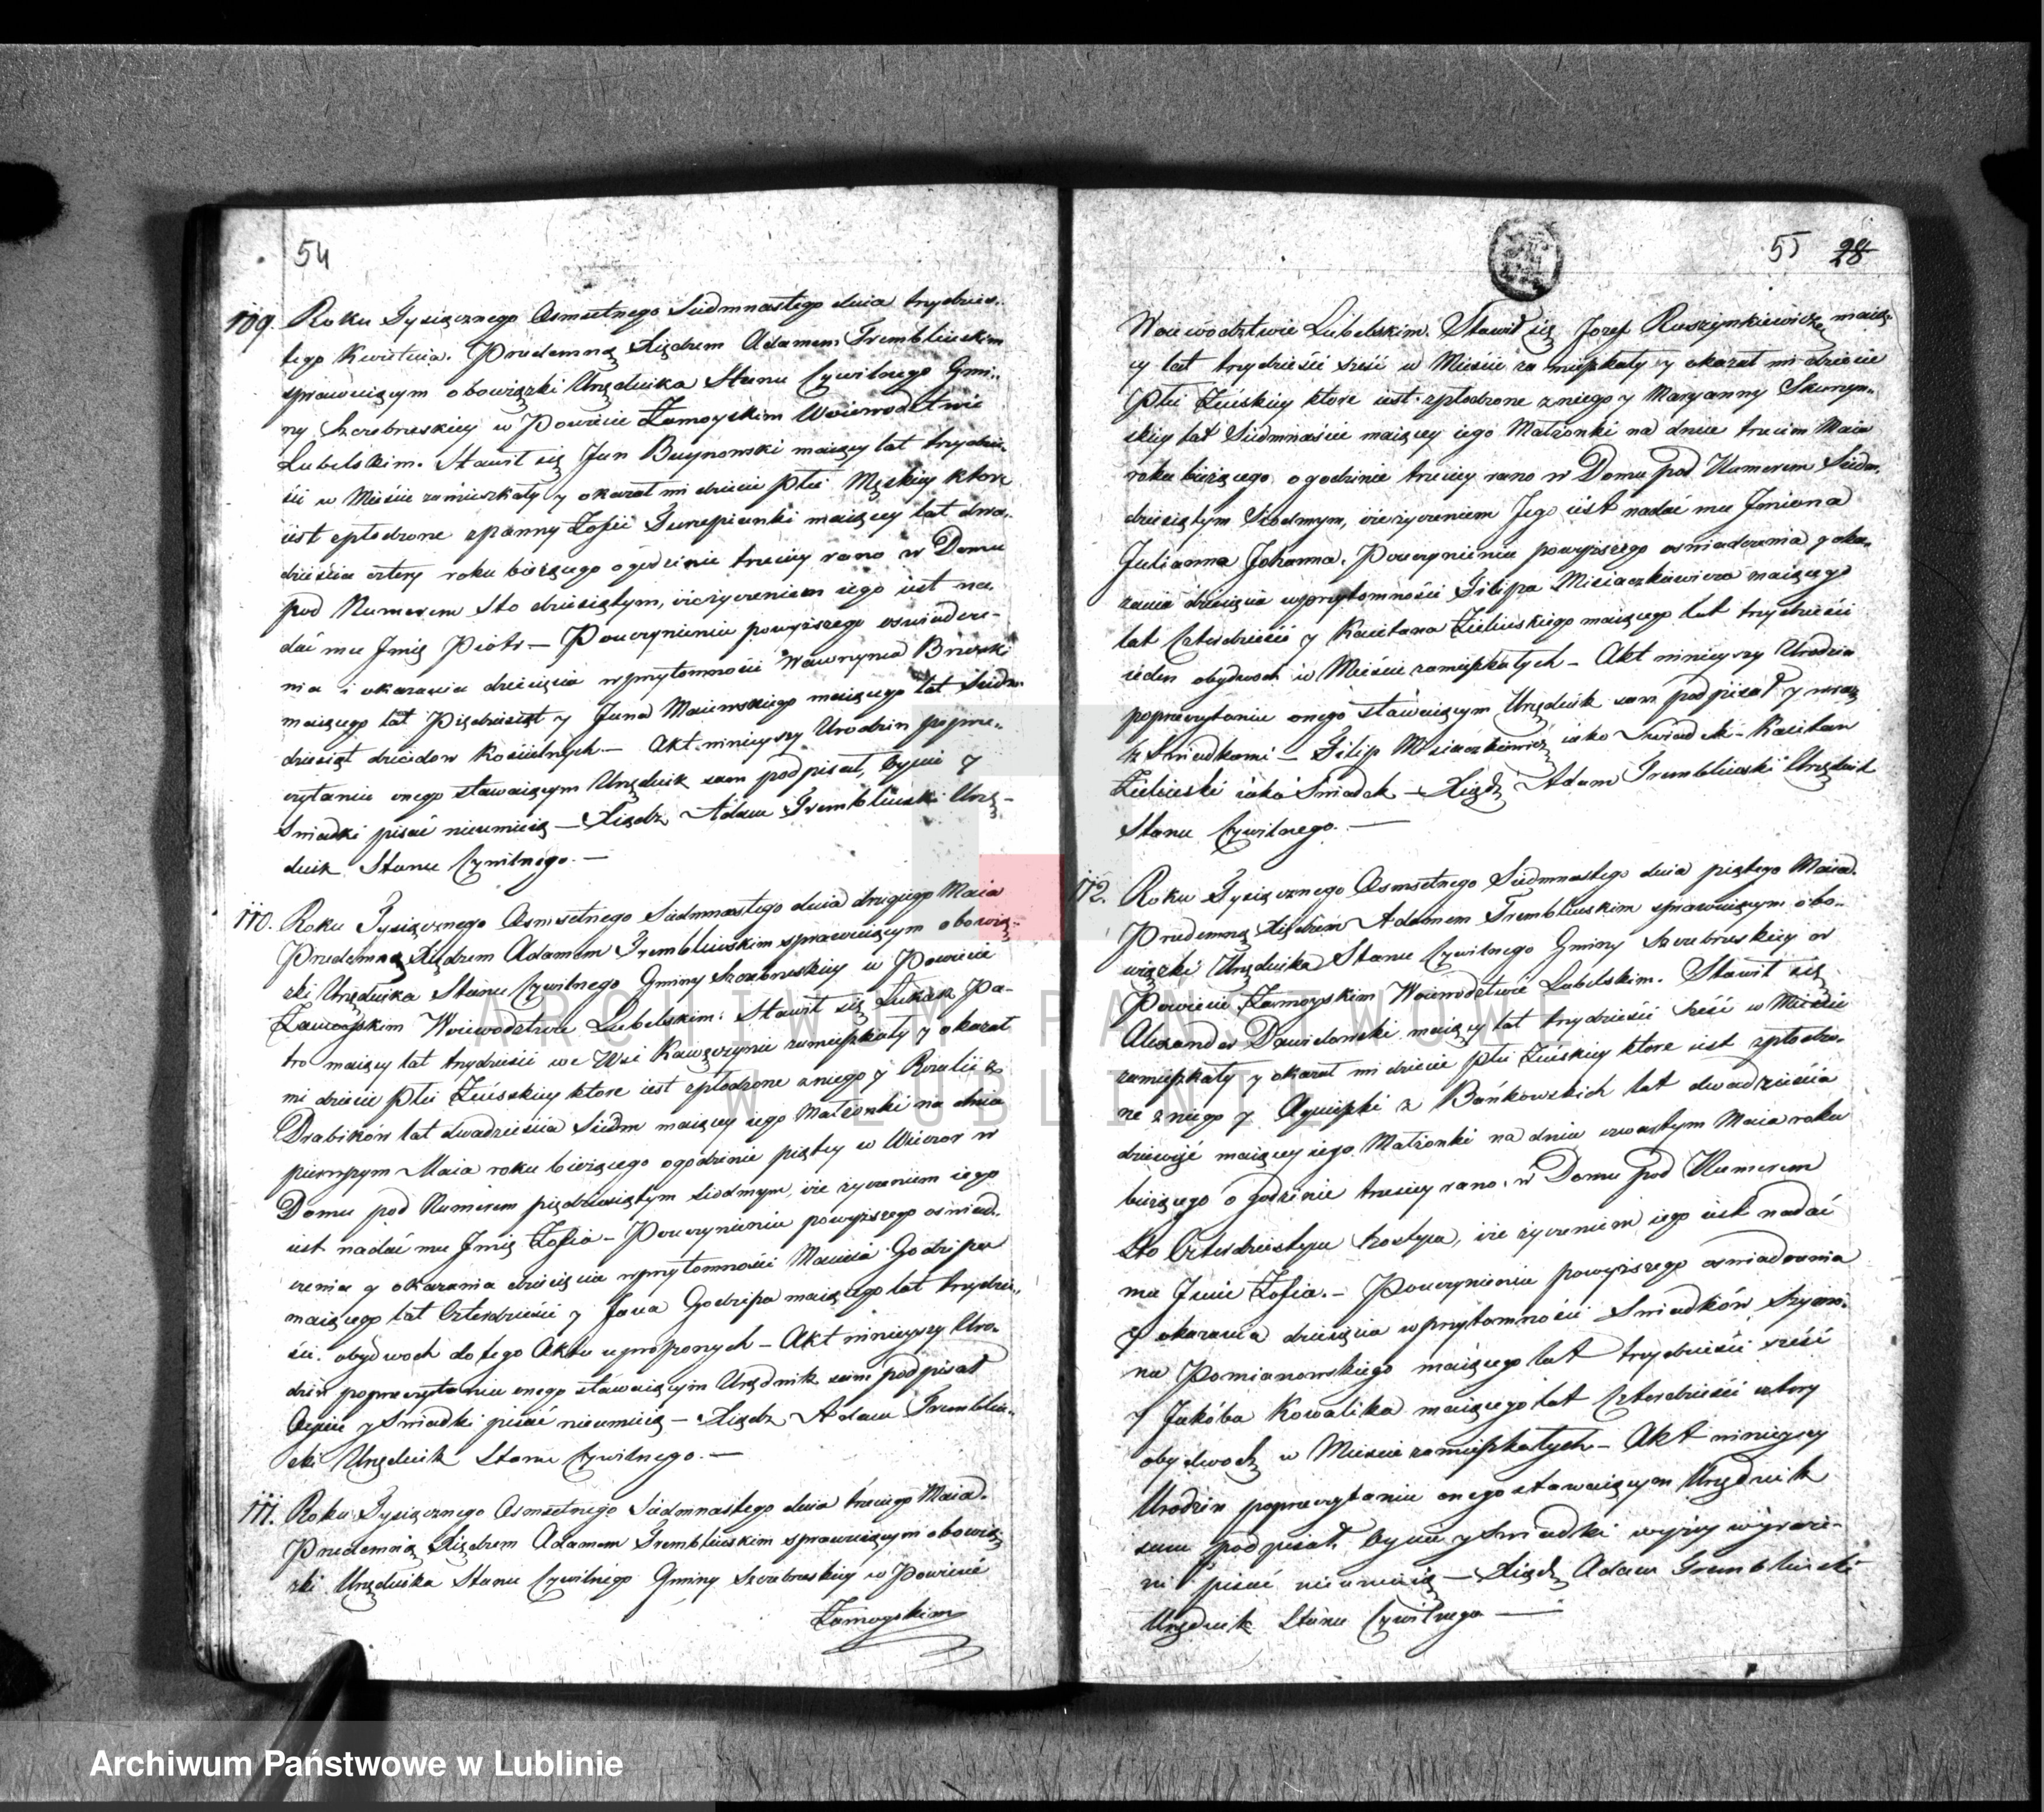 54
109. Roku Tysiącznego Osmsetnego Siedmnastego dnia trzydzies-
tego Kwietnia. Przedemną Xiędzem Adamem Tremblinskim
sprawuiącym obowiązki Urzędnika Stanu Cywilnego Gmi-
ny Szczebrzeskiey w Powiecie Zamoyskim Woiewodztwie
Lubelskim. Stawił się Jan maiący lat trzydzie-
ści w Mieście zamieszkały y okazał mi dziecie płci Męskiey ktore
iest spłodzone z Panny Zofii maiącey lat dwa-
dzieścia cztery roku bieżącego o godzinie trzeciey rano w Domu
pod Numerem Sto dziesiątym, iż życzeniem iego iest na-
dać mu Jmię Piotr — Po uczynieniu powyższego oswiadcze-
nia i okazania dziecięcia w przytomności Wawrzyńca
maiącego lat Pięćdziesiąt y Jana Maiewskiego maiącego lat Siedm-
dziesiąt dziadow Kościelnych — Akt ninieyszy Urodzin po prze-
czytaniu onego stawaiącym Urzędnik sam podpisał, Oyciec y
Swiadki pisać nieumieią — Xiądz Adam Tremblinski Urzę-
dnik Stanu Cywilnego. —
110. Roku Tysiącznego Osmsetnego Siedmnastego dnia drugiego Maia
Przedemną Xiędzem Adamem Tremblinskim sprawuiącym obowią-
zki Urzędnika Stanu Cywilnego Gminy Szczebrzeskiey w Powiecie
Zamoyskim Woiewodztwie Lubelskim. Stawił się Łukasz Pa-
tro maiący lat trzydzieści we Wsi Kawęczynie zamieszkały y okazał
mi dziecie płci Żeńskiey ktore iest spłodzone z niego y Rozalii z
Drabików lat dwadzieścia Siedm maiącey iego Małżonki na dniu
pierwszym Maia roku bieżącego o godzinie piątey w Wieczor w
Domu pod Numerem pięćdziesiątym siodmym, iż życzeniem iego
iest nadać mu Jmię Zofia — Po uczynieniu powyższego oswiad-
czenia y okazania dziecięcia w przytomności Macieia Godzisza
maiącego lat Czterdzieści y Jana Godzisza maiącego lat trzydzie-
ści. obydwoch do tego Aktu uproszonych — Akt ninieyszy Uro-
dzin po przeczytaniu onego stawaiącym Urzędnik sam podpisał
Oyciec y Swiadki pisać nieumieią — Xiądz Adam Tremblin-
ski Urzędnik Stanu Cywilnego. —
111. Roku Tysiącznego Osmsetnego Siedmnastego dnia trzeciego Maia.
Przedemną Xiędzem Adamem Tremblinskim sprawuiącym obowią-
zki Urzędnika Stanu Cywilnego Gminy Szczebrzeskiey w Powiecie
Zamoyskim
55 28
Woiewodztwie Lubelskim. Stawił się Jozef Ruszynkiewicz maią-
cy lat trzydzieści sześć w Mieście zamieszkały y okazał mi dziecie
Płci Żeńskiey ktore iest spłodzone z niego y Maryanny
skiey lat Siedmnaście maiącey iego Małżonki na dniu trzecim Maia
roku bieżącego o godzinie trzeciey rano w Domu pod Numerem Siedm-
dziesiątym Siodmym, iż życzeniem Jego iest nadać mu Jmiona
Julianna Johanna. Po uczynieniu powyższego oswiadczenia y oka-
zania dziecięcia w przytomności Filipa Misiaczkiewicza maiącego
lat Czterdzieści y Kaietana Zielińskiego maiącego lat trzydzieści
ieden obydwoch w Mieście zamieszkałych — Akt ninieyszy Urodzin
po przeczytaniu onego stawaiącym Urzędnik sam podpisał y wraz
z Swiadkami — Filip Misiaczkiewicz iako Swiadek — Kaietan
Zielinski iako Swiadek — Xiądz Adam Tremblinski Urzędnik
Stanu Cywilnego. —
112. Roku Tysiącznego Osmsetnego Siedmnastego dnia piątego Maia.
Przedemną Xiędzem Adamem Tremblinskim sprawuiącym obo-
wiązki Urzędnika Stanu Cywilnego Gminy Szczebrzeskiey w
Powiecie Zamoyskim Woiewodztwie Lubelskim. Stawił się
Alexander Dawidowski maiący lat trzydzieści sześć w Mieście
zamieszkały y okazał mi dziecie płci Żeńskiey ktore iest spłodzo-
ne z niego y Agnieszki z Bańkowskich lat dwadzieścia
dziewięć maiącey iego Małżonki na dniu czwartym Maia roku
bieżącego o godzinie trzeciey rano w Domu pod Numerem
Sto Czterdziestym Szostym, iż życzeniem iego iest nadać
mu Jmie Zofia. — Po uczynieniu powyższego oswiadczenia
y okazania dziecięcia w przytomności Swiadków Szymo-
na Pomianowskiego maiącego lat trzydzieści sześć
y Jakóba Kowalika maiącego lat Czterdzieści cztery
obydwoch w Mieście zamieszkałych — Akt ninieyszy
Urodzin po przeczytaniu onego stawaiącym Urzędnik
sam podpisał. Oyciec y Swiadki wyżey wyraże-
ni pisać nieumieią — Xiądz Adam Tremblinski
Urzędnik Stanu Cywilnego —
ARCHIWUM PAŃSTWOWE
W LUBLINIE
Archiwum Państwowe w Lublinie